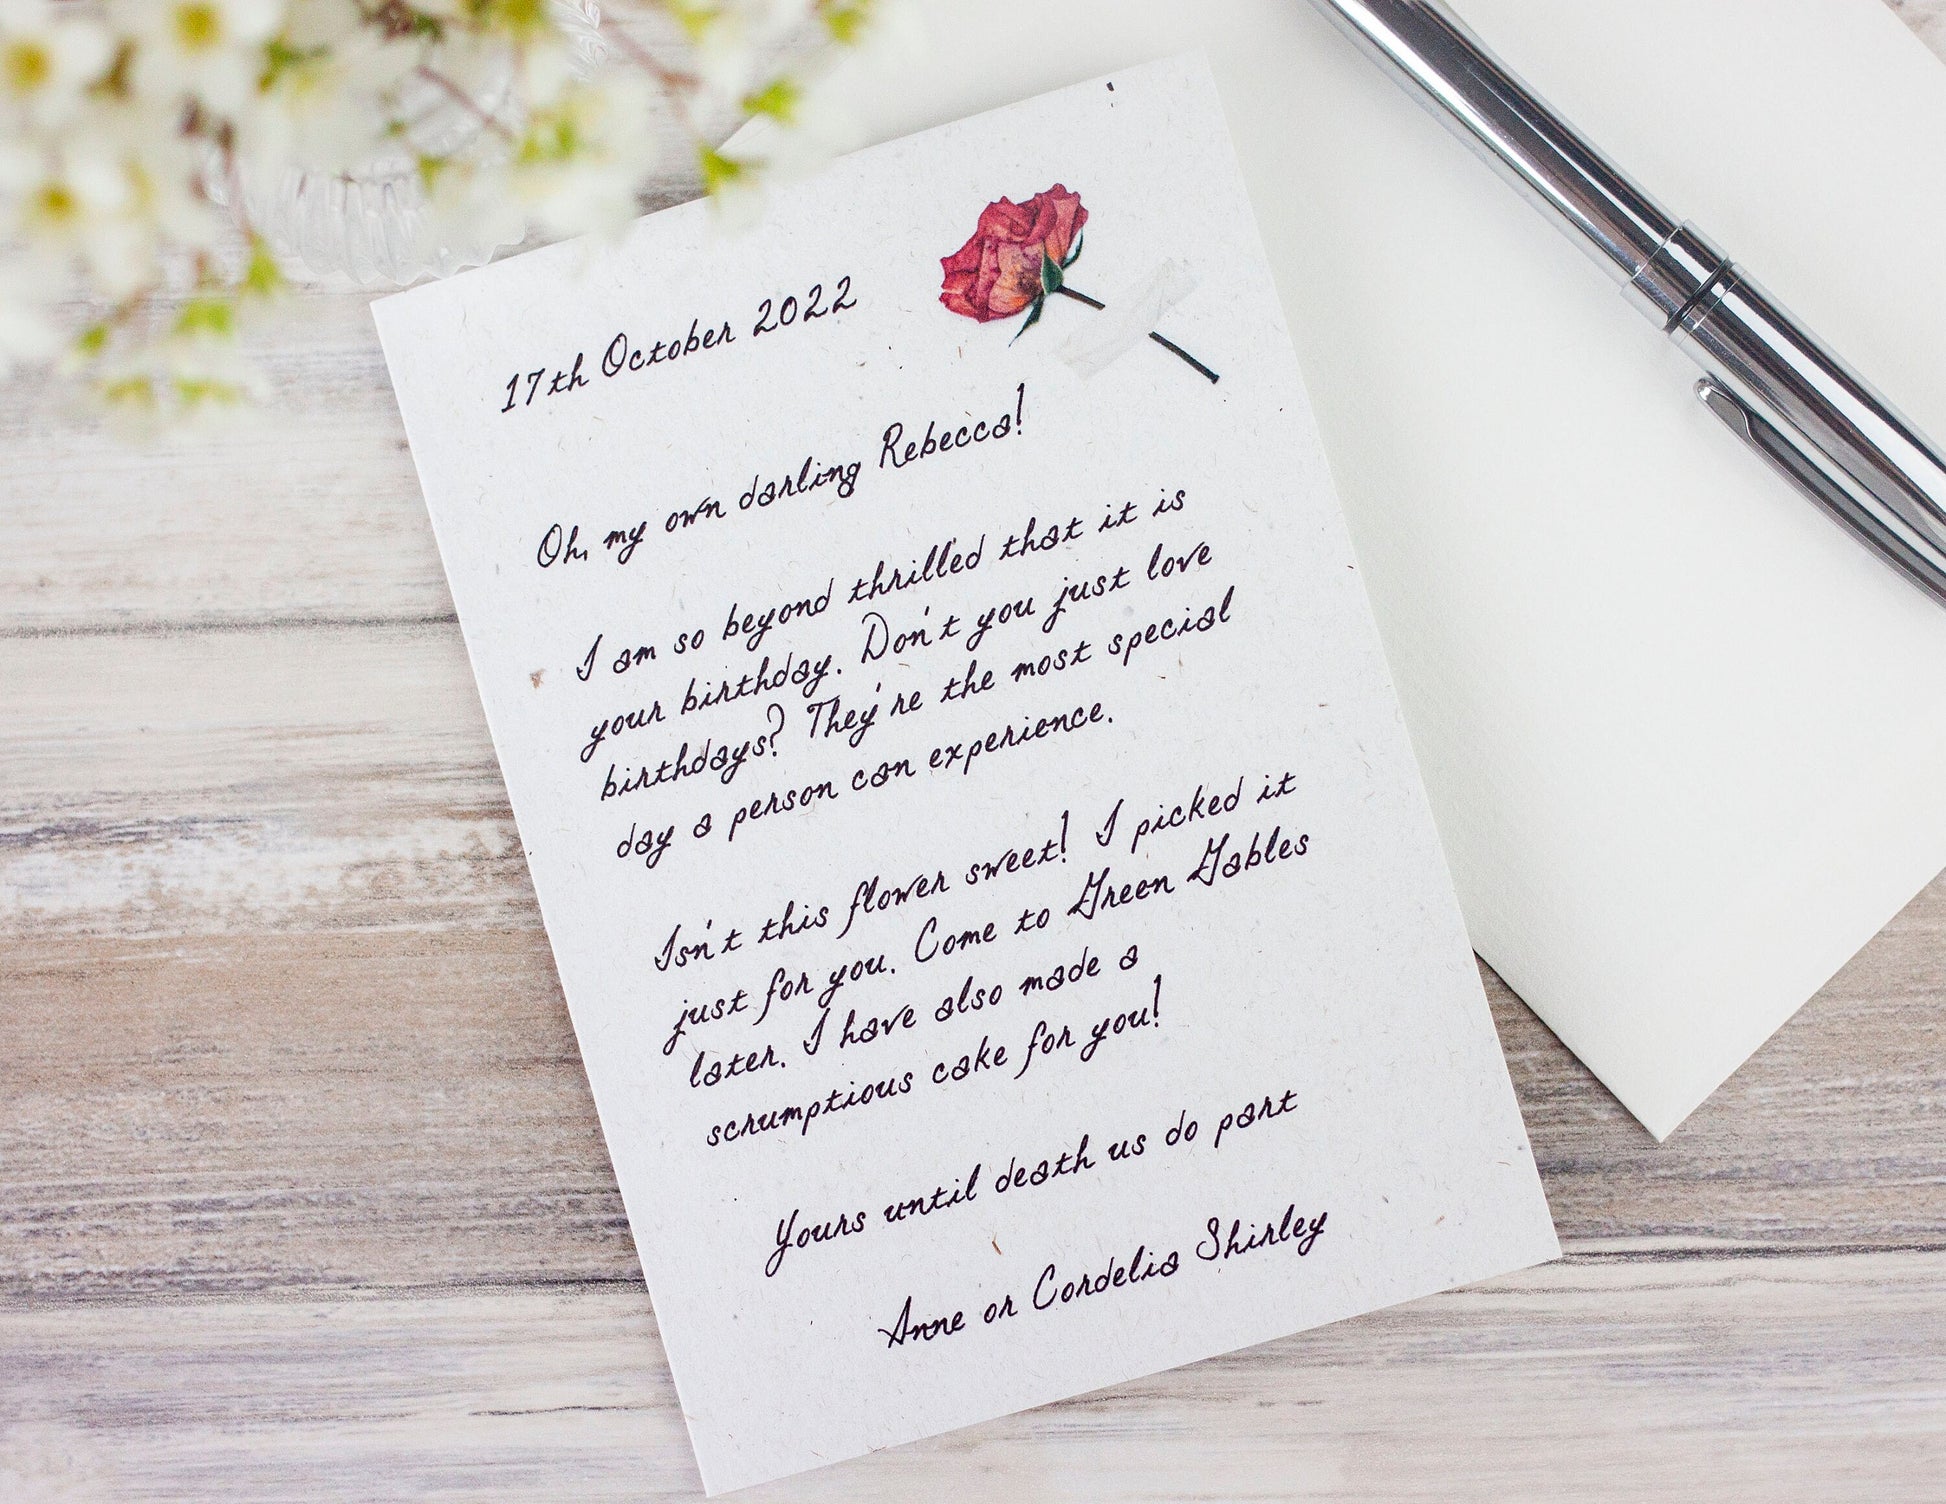 17th October 2022
Oh, my own darling Rebecca!
I am so beyond thrilled that it is
your birthday. Don't you just love
birthdays? They're the most special
day a person can experience.
Isn't this flower sweet! I picked it
just for you. Come to Green Gables
later. I have also made a
scrumptious cake for you!
Yours until death us do part
Anne or Cordelia Shirley